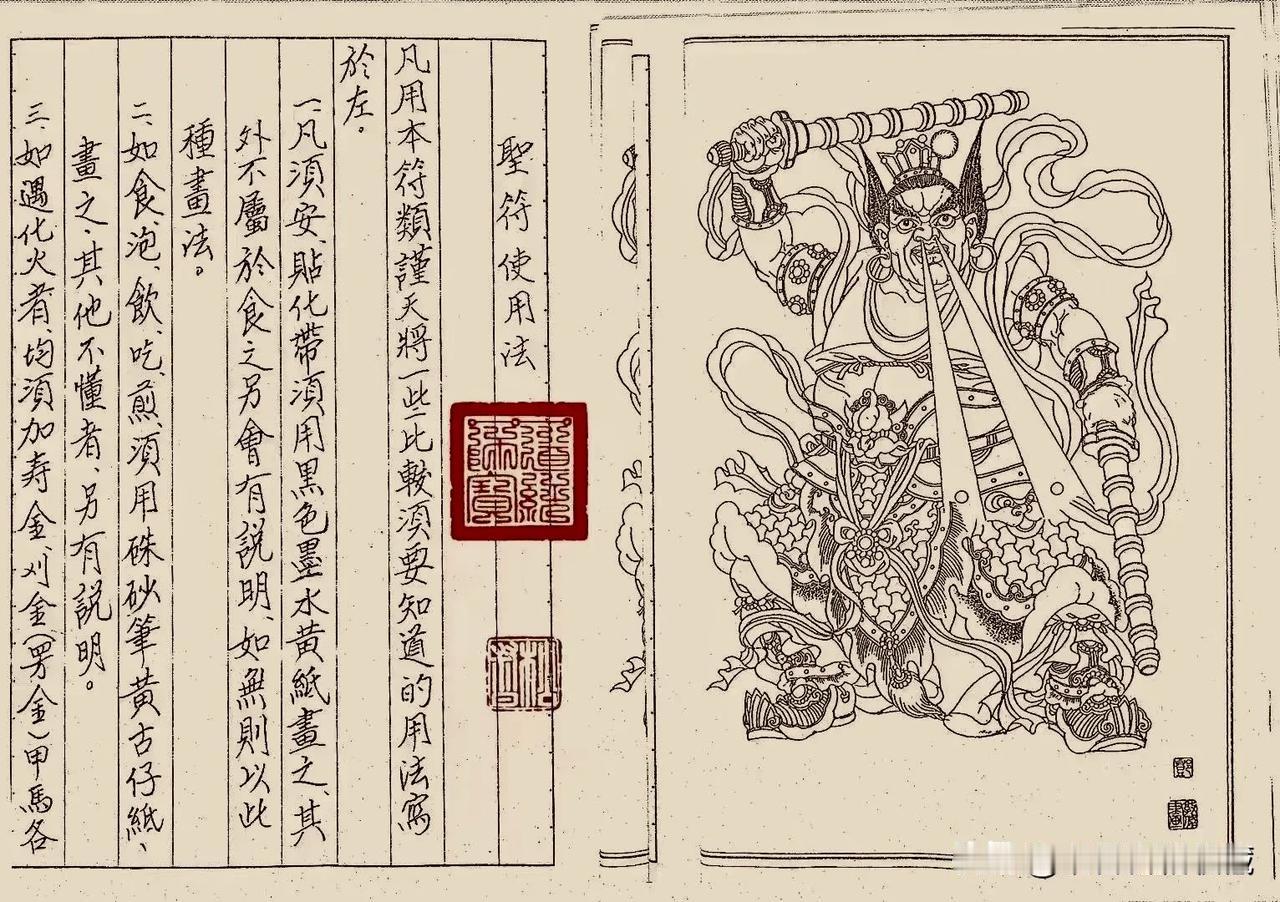 聖符使用法
凡用本符類謹天將一些比較須要知道的用法寫
於左。
一、凡須安、貼化帶須用黑色墨水黃紙畫之、其
外不屬於食之另會有說明、如無則以此
種畫法。
二、如食、泡、飲、吃、煎、須用硃砂筆黃古仔紙、
畫之、其他不懂者、另有說明。
三、如遇化火者、均須加寿金、刈金（男金）甲馬各